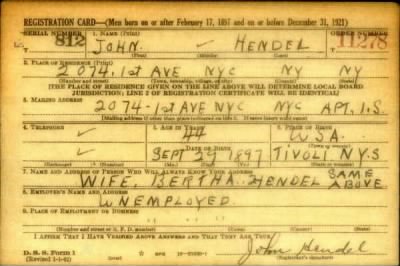 REGISTRATION CARD—(Men born on or after February 17, 1897 and on or before December 31, 1921)
SERIAL NUMBER 1. NAME (Print) ORDER NUMBER
812 JOHN. ✓ HENDEL 11278
(First) (Middle) (Last)
2. PLACE OF RESIDENCE (Print)
2074, 1st AVE NYC NY NY
(Number and street) (Town, township, village, or city) (County) (State)
[THE PLACE OF RESIDENCE GIVEN ON THE LINE ABOVE WILL DETERMINE LOCAL BOARD
JURISDICTION; LINE 2 OF REGISTRATION CERTIFICATE WILL BE IDENTICAL]
3. MAILING ADDRESS
2074-1st AVE NYC NYC APT, 1.S
[Mailing address if other than place indicated on line 2. If same insert word same]
4. TELEPHONE 5. AGE IN YEARS 6. PLACE OF BIRTH
✓ 44 USA
DATE OF BIRTH
✓ SEPT 29 1897 TIVOLI N.Y.S
(Exchange) (Number) (Mo.) (Day) (Yr.) (State or country)
7. NAME AND ADDRESS OF PERSON WHO WILL ALWAYS KNOW YOUR ADDRESS
WIFE, BERTHA. HENDEL SAME ABOVE
8. EMPLOYER'S NAME AND ADDRESS
UNEMPLOYED.
9. PLACE OF EMPLOYMENT OR BUSINESS
(Number and street or R. F. D. number) (Town) (County) (State)
I AFFIRM THAT I HAVE VERIFIED ABOVE ANSWERS AND THAT THEY ARE TRUE.
D. S. S. Form 1
John Hendel
(Registrant's signature)